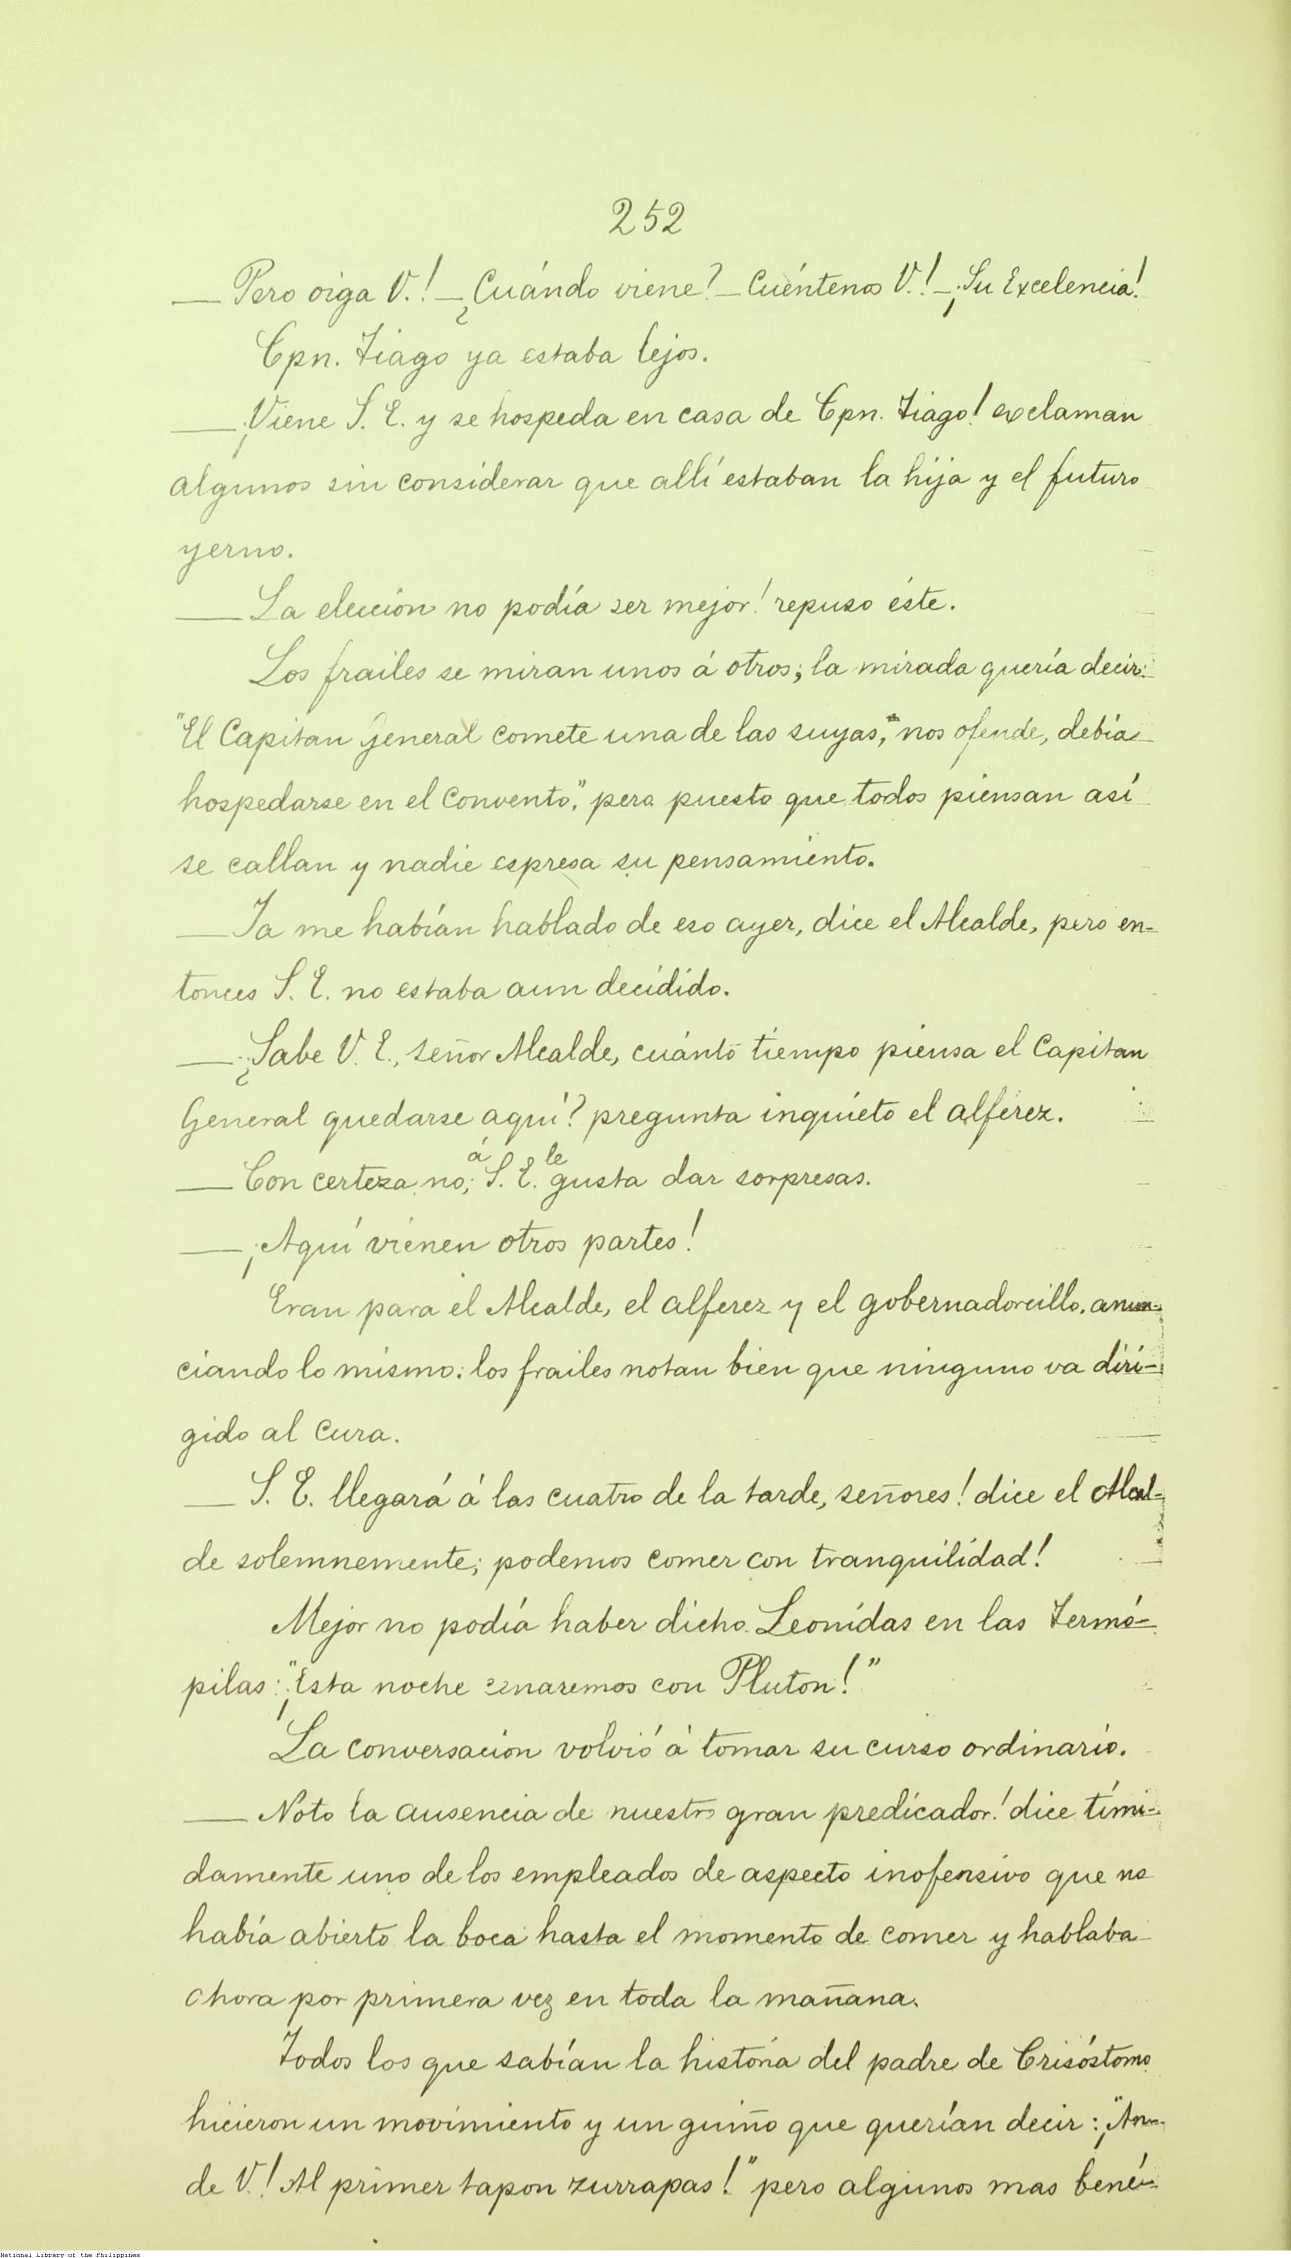 252
— Pero oiga V.! — ¿Cuándo viene? — Cuéntenos V.! — ¡Su Excelencia!
Cpn. Tiago ya estaba lejos.
— ¡Viene S. E. y se hospeda en casa de Cpn. Tiago! exclaman
algunos sin considerar que allí estaban la hija y el futuro
yerno.
— La eleccion no podía ser mejor! repuso éste.
Los frailes se miran unos á otros; la mirada quería decir:
"El Capitan General comete una de las suyas, nos ofende, debía
hospedarse en el convento," pero puesto que todos piensan así
se callan y nadie espresa su pensamiento.
— Ya me habían hablado de eso ayer, dice el Alcalde, pero en-
tonces S. E. no estaba aun decidido.
— ¿Sabe V. E., señor Alcalde, cuánto tiempo piensa el Capitan
General quedarse aquí? pregunta inquieto el alférez.
— Con certeza no; á S. E. le gusta dar sorpresas.
— ¡Aquí vienen otros partes!
Eran para el Alcalde, el alferez y el gobernadorcillo, anun-
ciando lo mismo: los frailes notan bien que ninguno va diri-
gido al cura.
— S. E. llegará á las cuatro de la tarde, señores! dice el Alcal-
de solemnemente; podemos comer con tranquilidad!
Mejor no podía haber dicho Leonidas en las Termó-
pilas: "¡Esta noche cenaremos con Pluton!"
La conversacion volvió á tomar su curso ordinario.
— Noto la ausencia de nuestro gran predicador! dice tími-
damente uno de los empleados de aspecto inofensivo que no
había abierto la boca hasta el momento de comer y hablaba
ahora por primera vez en toda la mañana.
Todos los que sabían la historia del padre de Crisóstomo
hicieron un movimiento y un guiño que querían decir: "¡An-
de V.! Al primer tapon zurrapas!" pero algunos mas bené-
National Library of the Philippines